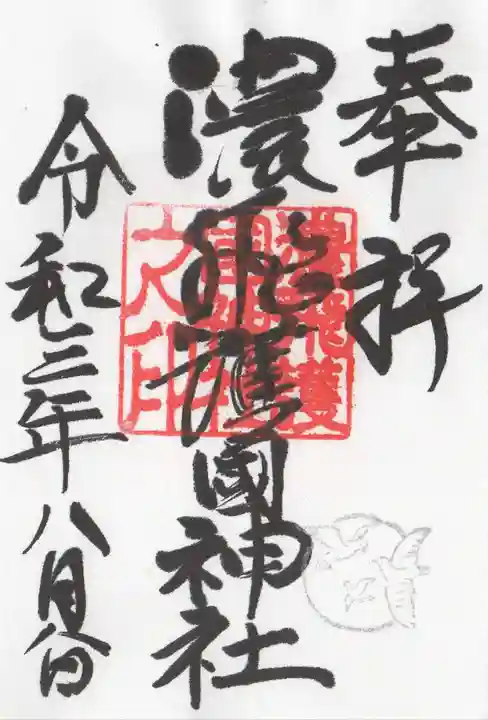 奉拝
濃飛護國神社
濃飛護
國神社
之印
令和三年八月日